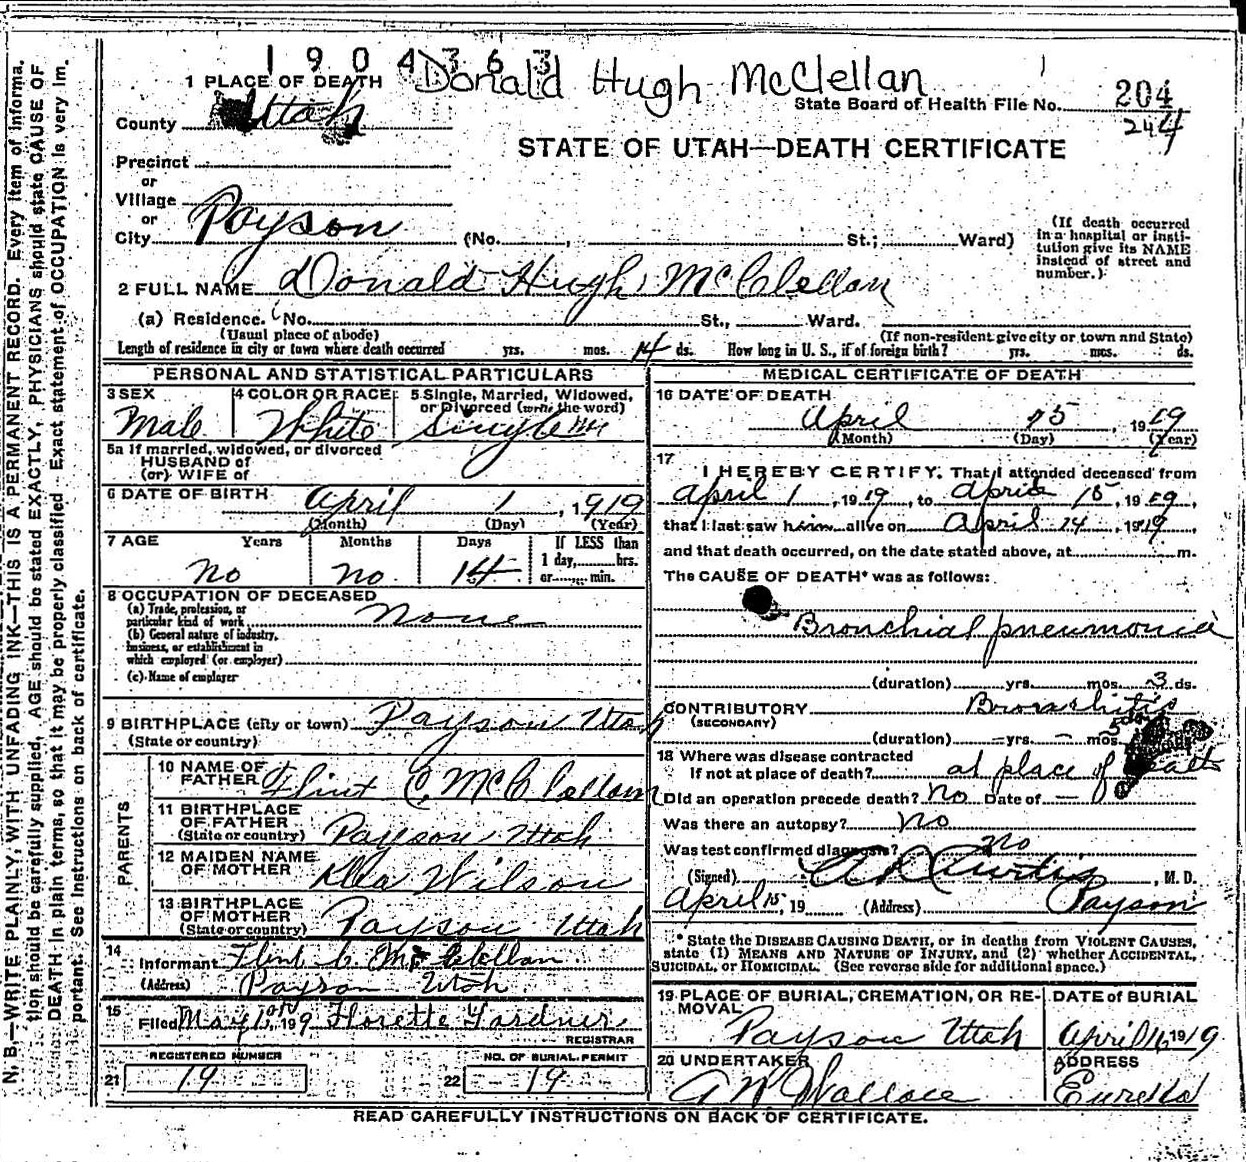 1904363
Donald Hugh McClellan
1 PLACE OF DEATH
State Board of Health File No. 204
244
County Utah
STATE OF UTAH—DEATH CERTIFICATE
Precinct
or
Village
or
City Payson (No. , St.; Ward)
(If death occurred in a hospital or insti-
tution give its NAME
instead of street and
number.)
2 FULL NAME Donald Hugh McClellan
(a) Residence. No. St., Ward.
(Usual place of abode) (If non-resident give city or town and State)
Length of residence in city or town where death occurred yrs. mos. 14 ds. How long in U. S., if of foreign birth? yrs. mos. ds.
PERSONAL AND STATISTICAL PARTICULARS
3 SEX
Male
4 COLOR OR RACE
White
5 Single, Married, Widowed,
or Divorced (write the word)
Single
5a If married, widowed, or divorced
HUSBAND of
(or) WIFE of
6 DATE OF BIRTH April 1, 1919
(Month) (Day) (Year)
7 AGE Years Months Days If LESS than
1 day, hrs.
or min.
No no. 14
8 OCCUPATION OF DECEASED
(a) Trade, profession, or
particular kind of work None
(b) General nature of industry,
business, or establishment in
which employed (or employer)
(c) Name of employer
9 BIRTHPLACE (city or town) Payson Utah
(State or country)
PARENTS
10 NAME OF
FATHER Flint C. McClellan
11 BIRTHPLACE
OF FATHER
(State or country) Payson Utah
12 MAIDEN NAME
OF MOTHER Wilson
13 BIRTHPLACE
OF MOTHER
(State or country) Payson Utah
14
Informant Flint C. McClellan
(Address) Payson Utah
15
Filed May 1919 Florette Gardner,
REGISTRAR
REGISTERED NUMBER
21 19
NO. OF BURIAL PERMIT
22 19
MEDICAL CERTIFICATE OF DEATH
16 DATE OF DEATH
April 15, 1919
(Month) (Day) (Year)
17
I HEREBY CERTIFY, That I attended deceased from
April 1, 1919, to April 15, 1919,
that I last saw him alive on April 14, 1919,
and that death occurred, on the date stated above, at m.
The CAUSE OF DEATH* was as follows:
Bronchial pneumonia
(duration) yrs. mos. 3 ds.
CONTRIBUTORY Bronchitis
(SECONDARY)
(duration) – yrs. – mos. 5 ds
18 Where was disease contracted
If not at place of death? at place of death
Did an operation precede death? No Date of —
Was there an autopsy? No
Was test confirmed diagnosis? No
(Signed) Curtis, M. D.
April 15, 19 (Address) Payson
* State the DISEASE CAUSING DEATH, or in deaths from VIOLENT CAUSES,
state (1) MEANS AND NATURE OF INJURY, and (2) whether ACCIDENTAL,
SUICIDAL, or HOMICIDAL. (See reverse side for additional space.)
19 PLACE OF BURIAL, CREMATION, OR RE-
MOVAL
Payson Utah
DATE of BURIAL
April 16 1919
20 UNDERTAKER
A W Wallace
ADDRESS
Eureka
READ CAREFULLY INSTRUCTIONS ON BACK OF CERTIFICATE.
N. B.—WRITE PLAINLY, WITH UNFADING INK—THIS IS A PERMANENT RECORD. Every item of informa-
tion should be carefully supplied, AGE should be stated EXACTLY, PHYSICIANS should state CAUSE OF
DEATH in plain terms, so that it may be properly classified. Exact statement of OCCUPATION is very im-
portant. See instructions on back of certificate.